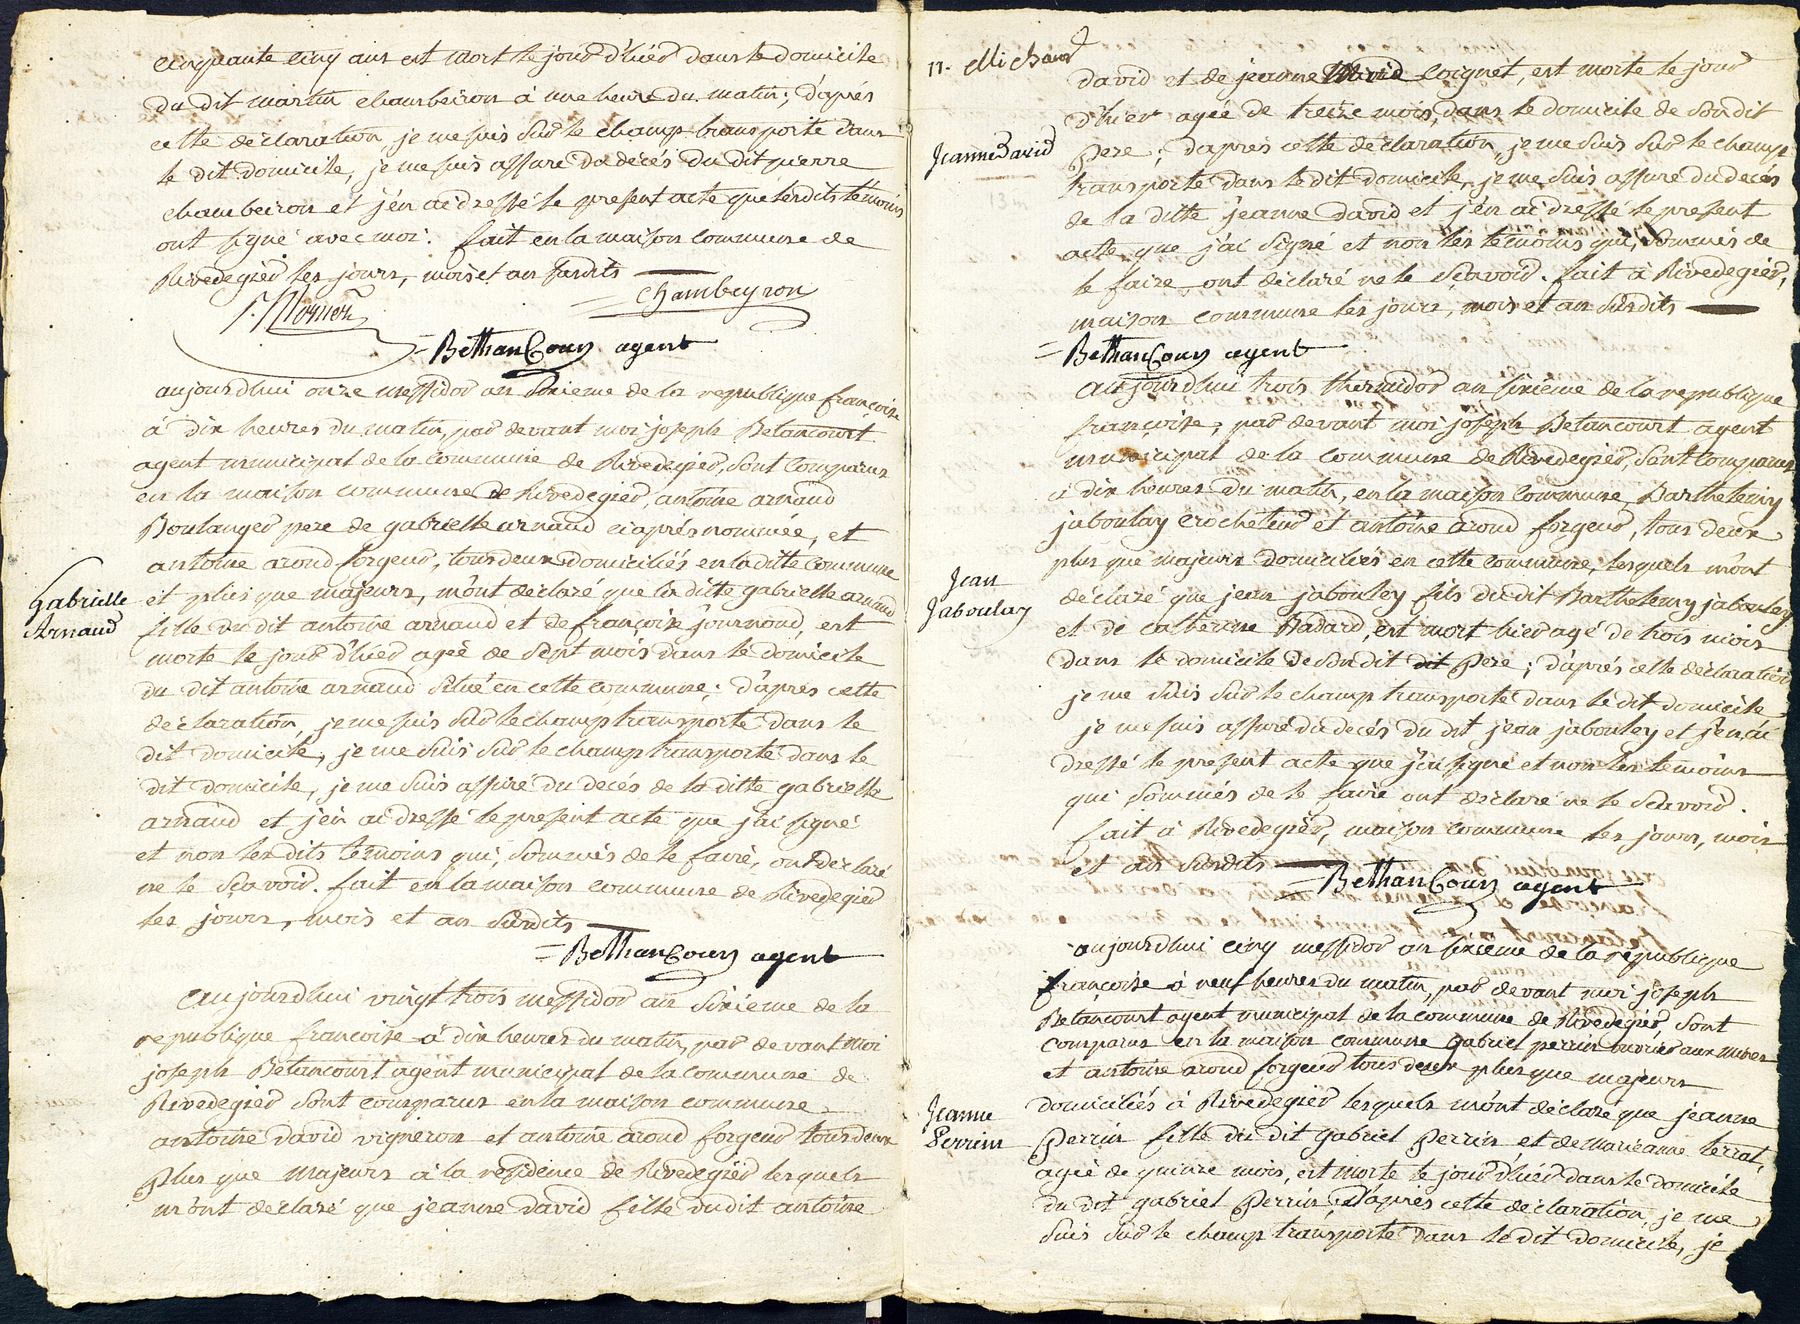 cinquante cinq ans est mort le jour d'hier dans le domicile
du dit martin chambeiron à une heure du matin; d'aprés
cette declaration, je me suis sur le champ transporté dans
le dit domicile, je me suis assuré du decés du dit pierre
chambeiron et j'en ai dressé le present acte que lesdits témoins
ont signé avec moi. fait en la maison commune de
Rivedegier les jours, mois et an susdits
chambeyron
Bethancourt agent
aujourdhui onze messidor an sixieme de la republique françoise
à dix heures du matin, par devant moi joseph Betancourt
agent municipal de la commune de Rivedegier, sont comparus
en la maison commune de Rivedegier, antoine arnaud
Boulanger pere de gabrielle arnaud ci aprés nommée, et
antoine aroud forgeur, tous deux domiciliés en la ditte commune
Gabrielle
Arnaud
et plus que majeurs, m'ont declaré que la ditte gabrielle arnaud
fille du dit antoine arnaud et de françoise journoud, est
morte le jour d'hier ageé de sept mois dans le domicile
du dit antoine arnaud situé en cette commune; d'aprés cette
declaration, je me suis sur le champ transporté dans le
dit domicile, je me suis sur le champ transporté dans le
dit domicile, je me suis assuré du decés de la ditte gabrielle
arnaud et j'en ai dressé le present acte que j'ai signé
et non les dits témoins qui, sommés de le faire, ont declaré
ne le sçavoir. fait en la maison commune de Rivedegier
les jours, mois et an susdits
Bethancourt agent
aujourdhui vingt trois messidor an sixieme de la
republique françoise à dix heures du matin, par devant moi
joseph Betancourt agent municipal de la commune de
Rivedegier sont comparus en la maison commune
antoine david vigneron et antoine aroud forgeur tous deux
plus que majeurs à la residence de Rivedegier lesquels
m'ont declaré que jeanne david fille dudit antoine
11. Michaud
david et de jeanne Marie Coignet, est morte le jour
d'hier ageé de treize mois, dans le domicile de son dit
Jeanne David
pere; d'aprés cette declaration, je me suis sur le champ
transporté dans le dit domicile, je me suis assuré du decés
de la ditte jeanne david et j'en ai dressé le present
acte que j'ai signé et non les témoins qui, sommés de
le faire, ont declaré ne le sçavoir. fait à Rivedegier,
maison commune les jours, mois et an susdits
Bethancourt agent
aujourdhui trois thermidor an sixieme de la republique
françoise, par devant moi joseph Betancourt agent
municipal de la commune de Rivedegier, sont comparus
à dix heures du matin, en la maison commune, Barthelemy
jaboulay crocheteur et antoine aroud forgeur, tous deux
plus que majeurs domiciliés en cette commune, lesquels m'ont
Jean
Jaboulay
declaré que jean jabouley fils du dit Barthelemy jabouley
et de catherine Badard, est mort hier agé de trois mois
dans le domicile de son dit dit pere; d'aprés cette declaration
je me suis sur le champ transporté dans le dit domicile
je me suis assuré du decés du dit jean jabouley et j'en ai
dressé le present acte que j'ai signé et non les témoins
qui sommés de le faire ont declaré ne le sçavoir.
fait à Rivedegier, maison commune les jours, mois
et an susdits
Bethancourt agent
aujourdhui cinq messidor an sixieme de la republique
françoise à neuf heures du matin, par devant moi joseph
Betancourt agent municipal de la commune de Rivedegier, sont
comparus en la maison commune gabriel perrin ouvrier aux mines
et antoine aroud forgeur tous deux plus que majeurs
domiciliés à Rivedegier lesquels m'ont declaré que jeanne
Jeanne
Perrin
perrin fille du dit gabriel perrin et de marieanne terrat,
ageé de quinze mois, est morte le jour d'hier dans le domicile
du dit gabriel perrin; d'aprés cette declaration, je me
suis sur le champ transporté dans le dit domicile, je